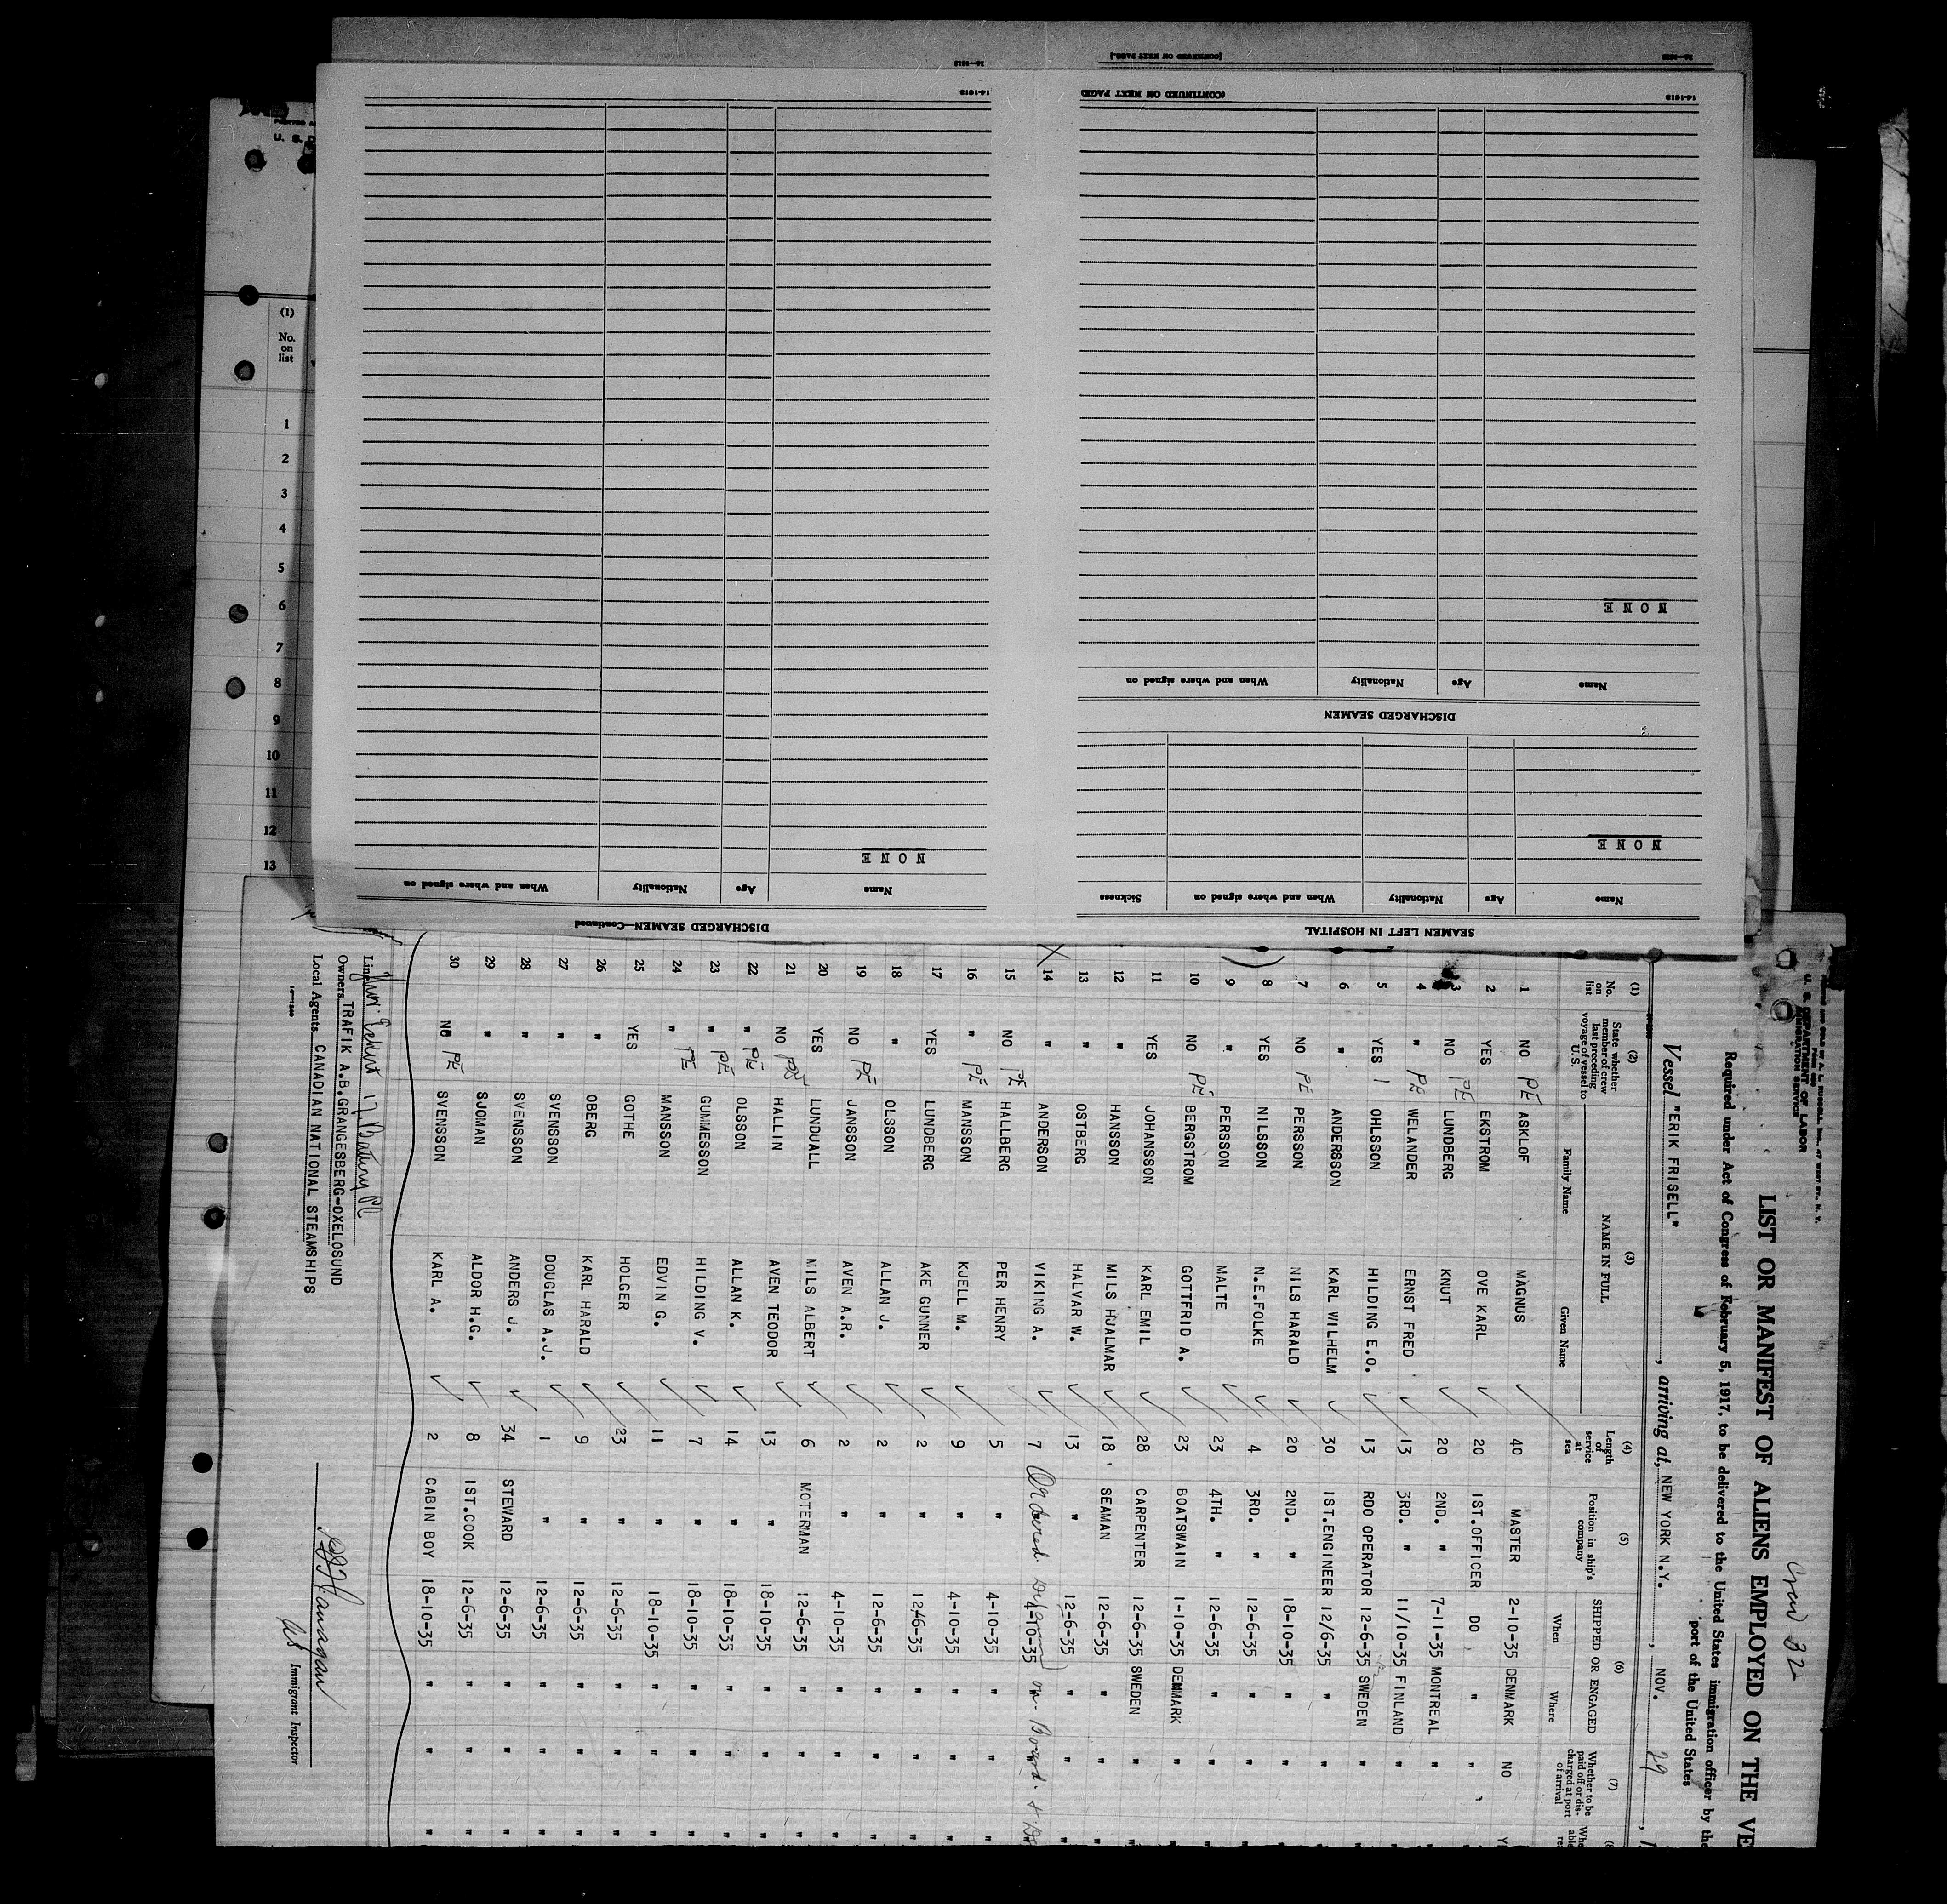 [CONTINUED ON NEXT PAGE.]
14-1213
(CONTINUED ON NEXT PAGE)
14-1213
SEAMEN LEFT IN HOSPITAL
Name Age Nationality When and where signed on Sickness
NONE
DISCHARGED SEAMEN
Name Age Nationality When and where signed on
NONE
DISCHARGED SEAMEN—Continued
Name Age Nationality When and where signed on
NONE
(1)
No.
on
list
1
2
3
4
5
6
7
8
9
10
11
12
13
PRINTED AND SOLD BY A. L. RUSSELL INC., 47 WEST ST., N. Y.
U. S. DEPARTMENT OF LABOR
IMMIGRATION SERVICE
Crew 32
LIST OR MANIFEST OF ALIENS EMPLOYED ON THE VE
Required under Act of Congress of February 5, 1917, to be delivered to the United States immigration officer by the
port of the United States
Vessel "ERIK FRISELL", arriving at, NEW YORK N.Y., NOV. 29,
(1) (2) (3) (4) (5) (6) (7)
No. on list State whether member of crew last preceding voyage of vessel to U.S. NAME IN FULL Length of service at sea Position in ship's company SHIPPED OR ENGAGED Whether to be paid off or discharged at port of arrival
Family Name Given Name When Where
1 NO PE ASKLOF MAGNUS 40 MASTER 2-10-35 DENMARK NO
2 YES EKSTROM OVE KARL 20 1ST.OFFICER DO " "
3 NO PE LUNDBERG KNUT 20 2ND. " 7-11-35 MONTREAL "
4 " PE WELANDER ERNST FRED 13 3RD. " 11/10-35 FINLAND "
5 YES OHLSSON HILDING E.O. 13 RDO OPERATOR 12-6-35 SWEDEN "
6 " ANDERSSON KARL WILHELM 30 1ST.ENGINEER 12/6-35 " "
7 NO PE PERSSON NILS HARALD 20 2ND. " 18-10-35 " "
8 YES NILSSON N.E.FOLKE 4 3RD. " 12-6-35 " "
9 " PERSSON MALTE 23 4TH. " 12-6-35 " "
10 NO PE BERGSTROM GOTTFRID A. 23 BOATSWAIN 1-10-35 DENMARK "
11 YES JOHANSSON KARL EMIL 28 CARPENTER 12-6-35 SWEDEN "
12 " HANSSON NILS HJALMAR 18 SEAMAN 12-6-35 " "
13 " OSTBERG HALVAR W. 13 " 12-6-35 " "
14 " ANDERSON VIKING A. 7 Ordered 4-10-35 on Board.
15 NO PE HALLBERG PER HENRY 5 " 4-10-35 " "
16 " PE MANSSON KJELL M. 9 " 4-10-35 " "
17 YES LUNDBERG AKE GUNNER 2 " 12-6-35 " "
18 " OLSSON ALLAN J. 2 " 12-6-35 " "
19 NO PE JANSSON AVEN A.R. 2 " 4-10-35 " "
20 YES LUNDUALL NILS ALBERT 6 MOTERMAN 12-6-35 " "
21 NO PE HALLIN AVEN TEODOR 13 " 18-10-35 " "
22 " PE OLSSON ALLAN K. 14 " 18-10-35 " "
23 " PE GUMMESSON HILDING V. 7 " 18-10-35 " "
24 " PE MANSSON EDVIN G. 11 " 18-10-35 " "
25 YES GOTHE HOLGER 23 " 12-6-35 " "
26 " OBERG KARL HARALD 9 " 12-6-35 " "
27 " SVENSSON DOUGLAS A.J. 1 " 12-6-35 " "
28 " SVENSSON ANDERS J. 34 STEWARD 12-6-35 " "
29 " SJOMAN ALDOR H.G. 8 1ST.COOK 12-6-35 " "
30 NO PE SVENSSON KARL A. 2 CABIN BOY 18-10-35 " "
Line 17 Battery Pl
Owners TRAFIK A.B.GRANGESBERG-OXELOSUND
Local Agents CANADIAN NATIONAL STEAMSHIPS
Immigrant Inspector